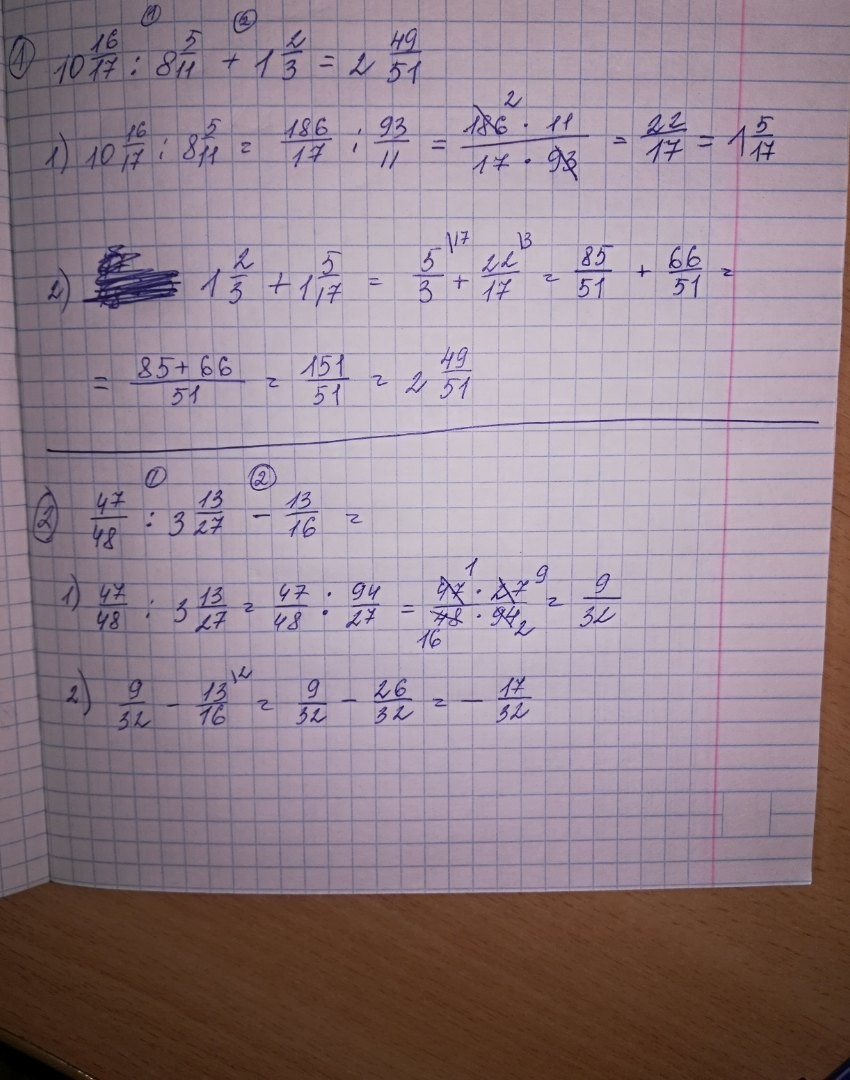 ① ②
① 10 16/17 : 8 5/11 + 1 2/3 = 2 49/51
1) 10 16/17 : 8 5/11 = 186/17 : 93/11 = 186 2 · 11 / 17 · 93 = 22/17 = 1 5/17
2) 1 2/3 + 1 5/17 = 5/3 \17 + 22/17 \3 = 85/51 + 66/51 =
= 85 + 66 / 51 = 151/51 = 2 49/51
① ②
② 47/48 : 3 13/27 - 13/16 =
1) 47/48 : 3 13/27 = 47/48 : 94/27 = 47 1 · 27 9 / 48 16 · 94 2 = 9/32
2) 9/32 - 13/16 \2 = 9/32 - 26/32 = - 17/32